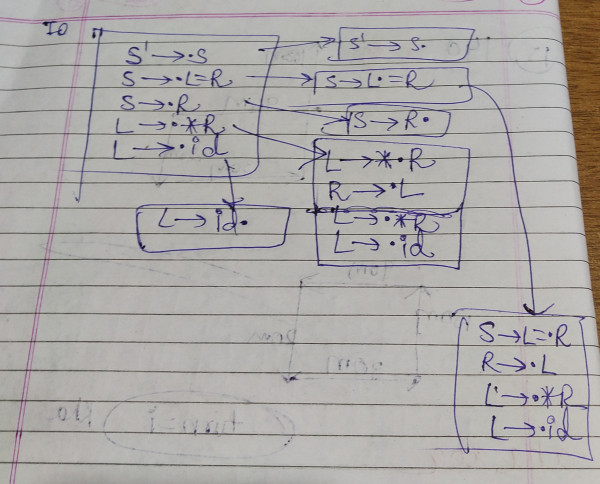 I0
S' → ·S
S → ·L=R
S → ·R
L → ·*R
L → ·id
S' → S·
S → L·=R
S → R·
L → *·R
R → ·L
L → ·*R
L → ·id
L → id·
S → L=·R
R → ·L
L → ·*R
L → ·id